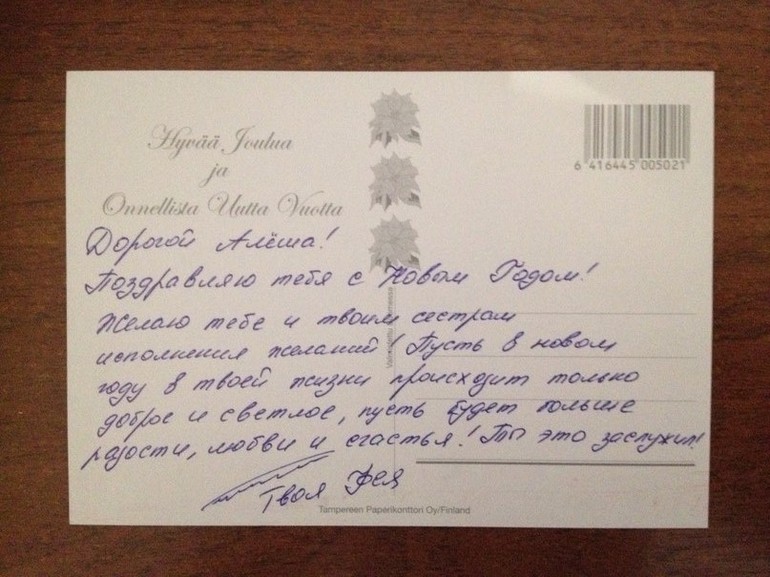 Hyvää Joulua
ja
Onnellista Uutta Vuotta
6 416445 005021
Дорогой Алёша!
Поздравляю тебя с Новым Годом!
Желаю тебе и твоим сестрам
исполнения желаний! Пусть в новом
году в твоей жизни происходит только
доброе и светлое, пусть будет больше
радости, любви и счастья! Ты это заслужил!
Твоя Фея
Tampereen Paperikonttori Oy/Finland